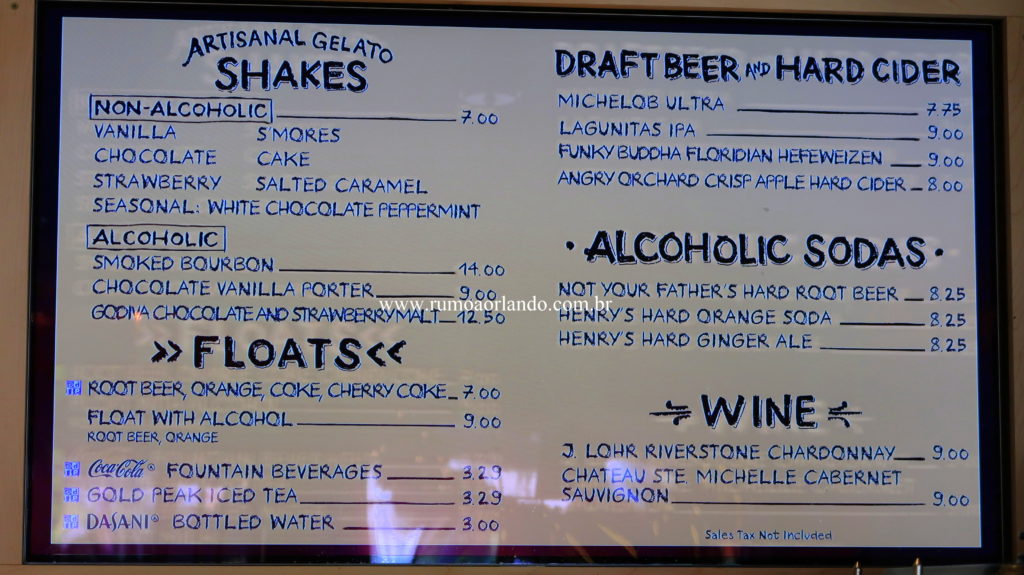 ARTISANAL GELATO
SHAKES
NON-ALCOHOLIC 7.00
VANILLA S'MORES
CHOCOLATE CAKE
STRAWBERRY SALTED CARAMEL
SEASONAL: WHITE CHOCOLATE PEPPERMINT
ALCOHOLIC
SMOKED BOURBON 14.00
CHOCOLATE VANILLA PORTER 9.00
GODIVA CHOCOLATE AND STRAWBERRY MALT 12.50
>> FLOATS <<
ROOT BEER, ORANGE, COKE, CHERRY COKE 7.00
FLOAT WITH ALCOHOL 9.00
ROOT BEER, ORANGE
Coca-Cola® FOUNTAIN BEVERAGES 3.29
GOLD PEAK ICED TEA 3.29
DASANI® BOTTLED WATER 3.00
DRAFT BEER AND HARD CIDER
MICHELOB ULTRA 7.75
LAGUNITAS IPA 9.00
FUNKY BUDDHA FLORIDIAN HEFEWEIZEN 9.00
ANGRY ORCHARD CRISP APPLE HARD CIDER 8.00
· ALCOHOLIC SODAS ·
NOT YOUR FATHER'S HARD ROOT BEER 8.25
HENRY'S HARD ORANGE SODA 8.25
HENRY'S HARD GINGER ALE 8.25
WINE
J. LOHR RIVERSTONE CHARDONNAY 9.00
CHATEAU STE. MICHELLE CABERNET
SAUVIGNON 9.00
Sales Tax Not Included
www.rumoaorlando.com.br